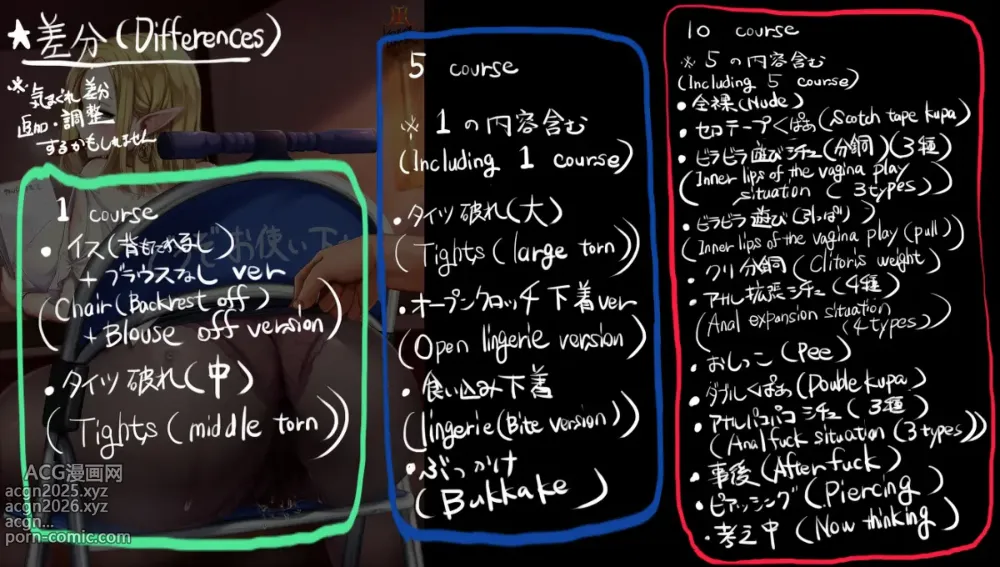 ★差分(Differences)
※気まぐれ差分
追加・調整
するかもしれません
1 course
・イス(背もたれなし)
+ブラウスなし ver
(Chair(Backrest off)
+ Blouse off version)
・タイツ破れ(中)
(Tights(middle torn))
5 course
※1の内容含む
(Including 1 course)
・タイツ破れ(大)
(Tights(large torn))
・オープンクロッチ下着ver
(Open lingerie version)
・食い込み下着
(lingerie(Bite version))
・ぶっかけ
(Bukkake)
10 course
※5の内容含む
(Including 5 course)
・全裸(Nude)
・セロテープくぱぁ(Scotch tape kupa)
・ビラビラ遊びシチュ(分銅)(3種)
(Inner lips of the vagina play
situation (3types))
・ビラビラ遊び(引っぱり)
(Inner lips of the vagina play(pull))
・クリ分銅(Clitoris weight)
・アナル拡張シチュ(4種)
(Anal expansion situation
(4types))
・おしっこ(Pee)
・ダブルくぱぁ(Double kupa)
・アナルパコパコシチュ(3種)
(Anal fuck situation(3types))
・事後(After fuck)
・ピアッシング(Piercing)
・考え中(Now thinking)
お使い下
ACG漫画网
acgn2025.xyz
acgn2026.xyz
acgn...
porn-comic.com